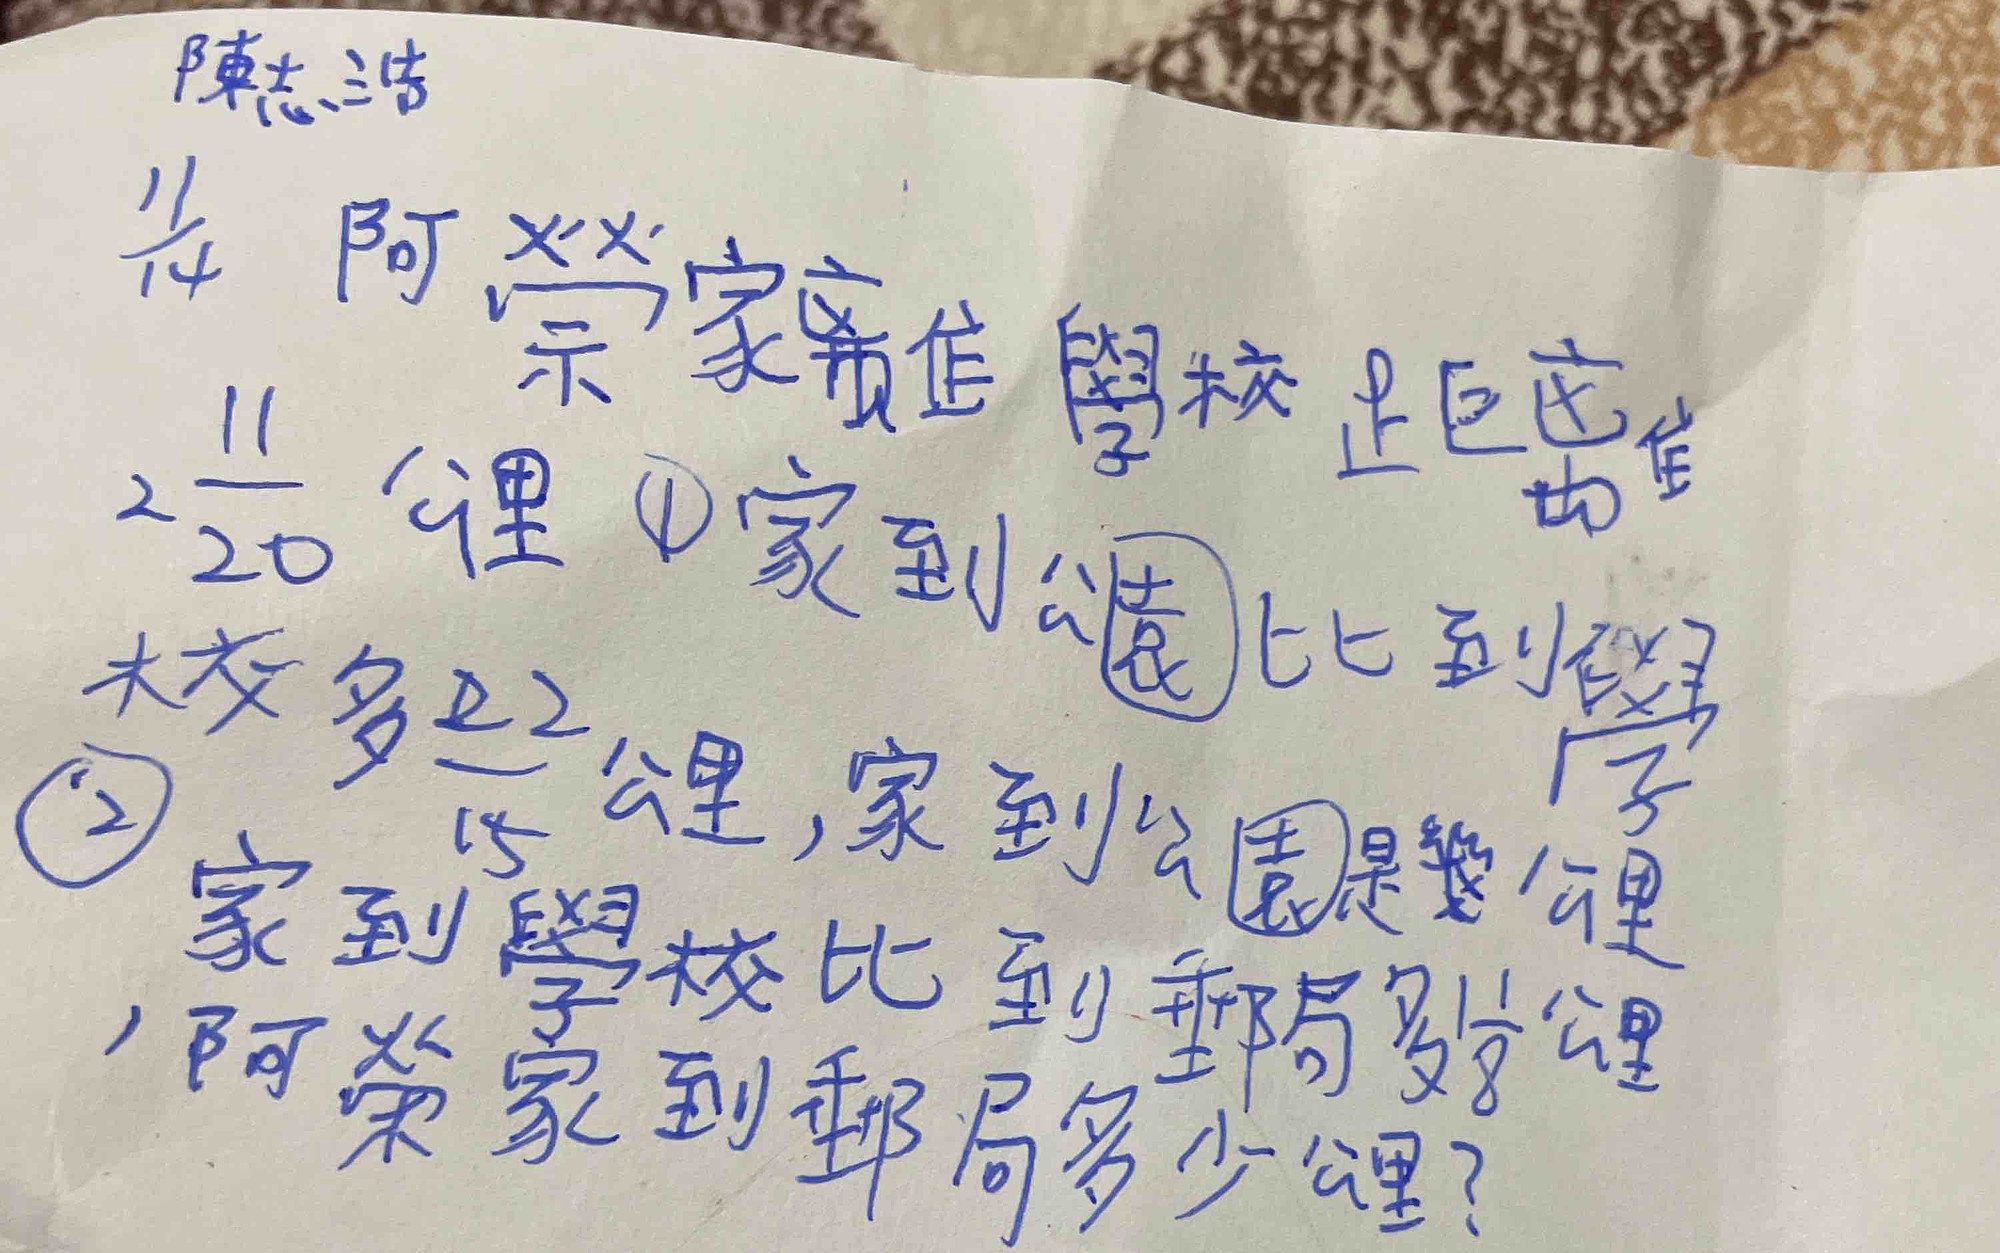 陳志浩
11/14 阿榮家離學校距離
2 11/20 公里 ① 家到公園比到學
校多 22/15 公里,家到公園是幾公里
② 家到學校比到郵局多 11/8 公里
,阿榮家到郵局多少公里?